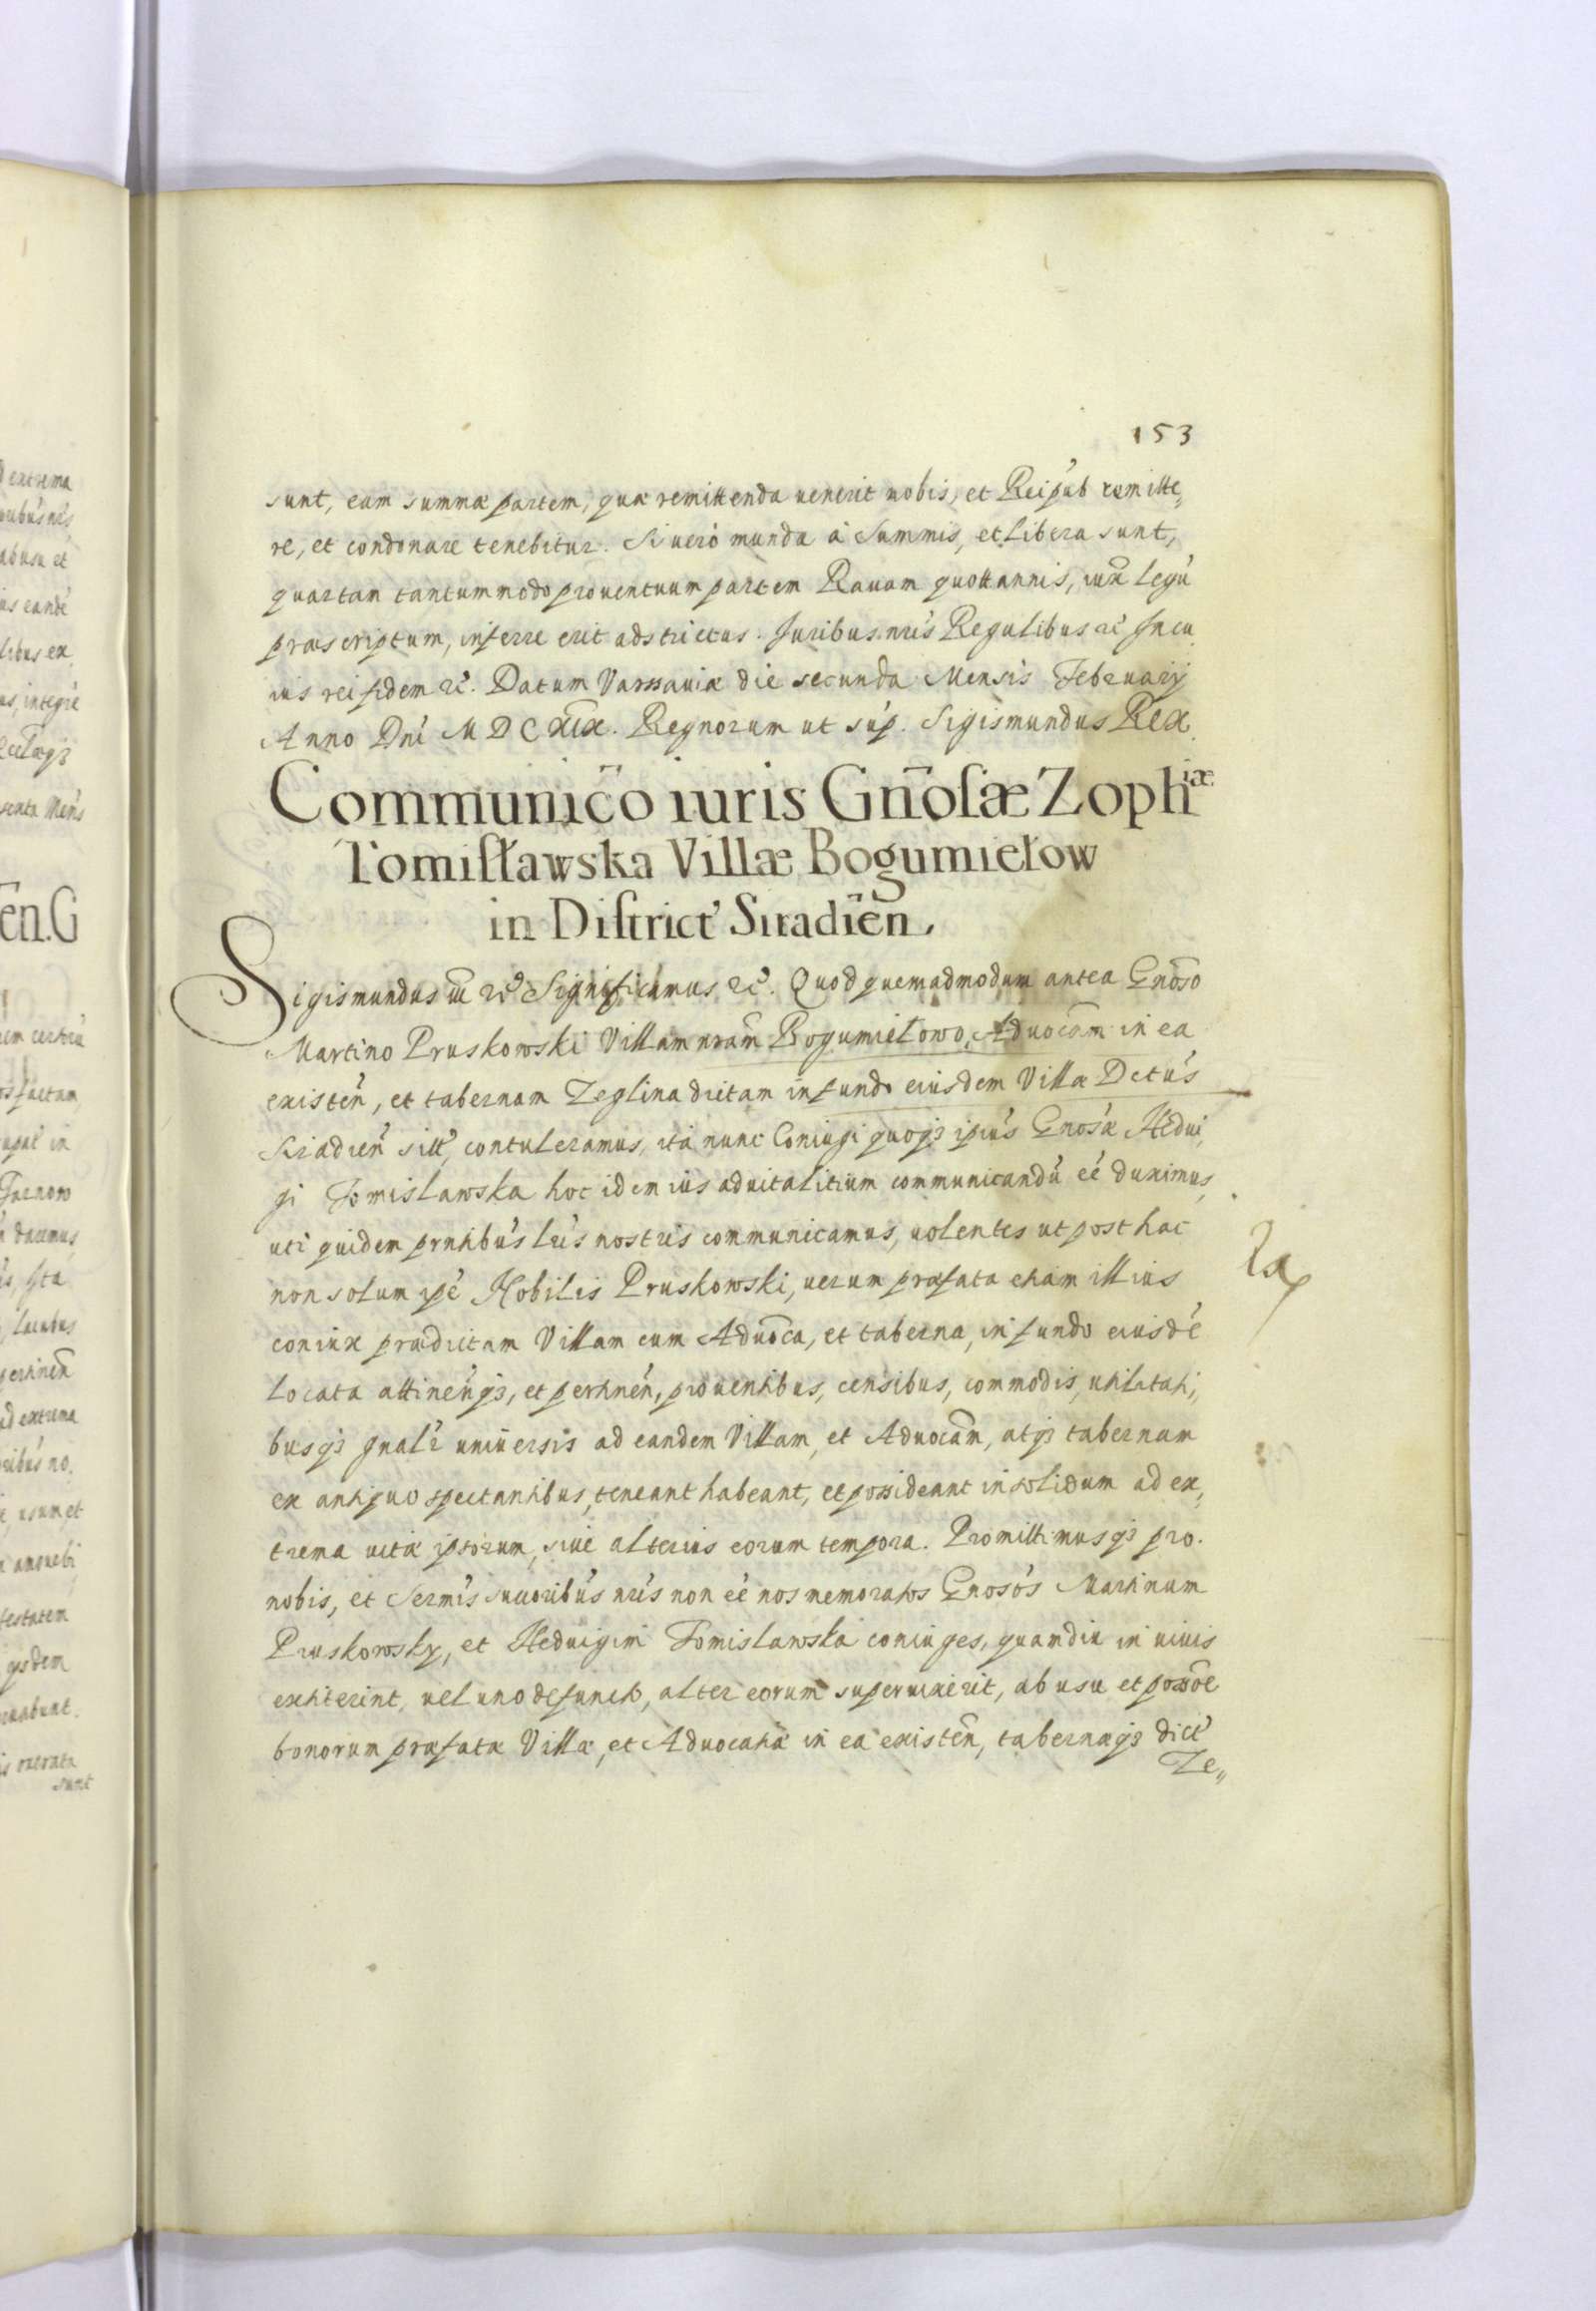 153
sunt, eam summæ partem, quæ remittenda uenerit nobis, et Reipub́ remitte,
re, et condonare tenebitur. Si uero munda à summis, et libera sunt,
quartam tantummodo prouentuum partem Rauam quottannis, iux̃ legũ
præscriptum, inferre erit adstrictus. Juribus nr̃is Regalibus ꝛc̃ In cu
ius rei fidem ꝛc̃. Datum Varssauiæ die secunda Mensis Februarij
Anno Dnĩ MDCXIX. Regnorum ut sup̃. Sigismundus Rex.
Communicõ iuris Gñosæ Zophiæ
Tomisławska Villæ Bogumiełow
in District̃ Siradień.
Sigismundus iiĩ ꝛc̃ Significamus ꝛc̃. Quod quemadmodum antea Gnõso
Martino Pruskowski Villam nr̃am Bogumiełowo, Aduocãm in ea
existeñ, et tabernam Zeglina dictam in fundo eiusdem Villæ Dctũs
Siradieñ sitt̃, contuleramus, ita nunc Coniugi quoqꝫ ipiũs Gnosæ̃ Hedui,
gi Tomislawska hoc idem ius aduitalitium communicandũ eẽ duximus,
uti quidem prntibũs lr̃is nostris communicamus, uolentes ut post hac
non solum ipẽ Nobilis Pruskowski, uerum præfata etiam illius
coniux prædictam Villam cum Aduõca, et taberna, in fundo eiusdẽ
locata attineñqꝫ, et pertineñ, prouentibus, censibus, commodis, utilitati,
busqꝫ gnalr̃ uniuersis ad eandem Villam, et Aduocãm, atqꝫ tabernam
ex antiquo spectantibus, teneant habeant, et possideant in solidum ad ex,
trema uitæ ipsorum, siue alterius eorum tempora. Promittimusqꝫ pro.
nobis, et Sermĩs succoribũs nr̃is non eẽ nos memoratos Gnosõs Martinum
Pruskowsky, et Heduigim Tomislawska coniuges, quamdiu in uiuis
extiterint, uel uno defuncto, alter eorum superuixerit, ab usu et possõe
bonorum præfatæ Villæ, et Aduocatiæ in ea existeñ, tabernæqꝫ dict̃
Ze,,